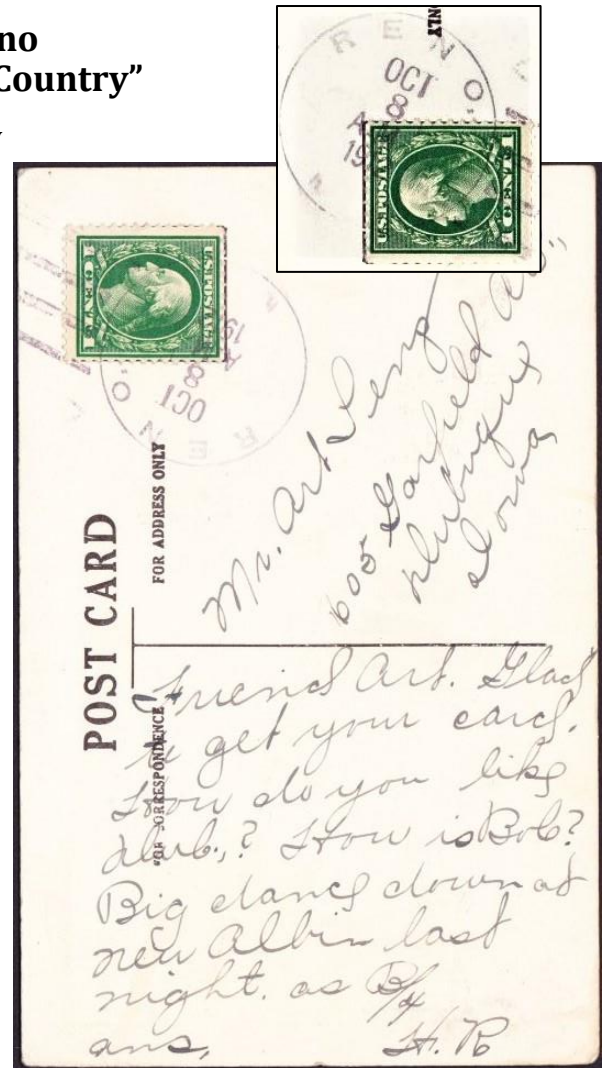 no
Country”
ONLY
RENO
OCT
8
A
19
U.S. POSTAGE
1 CENT 1
U.S. POSTAGE
1 CENT 1
19
A
8
OCT
RENO
POST CARD
FOR ADDRESS ONLY
FOR CORRESPONDENCE
Mr. Art
605 Garfield Av.,
Dubuque
Iowa
Friend Art. Glad
to get your card.
How do you like
dub.,? How is Bob?
Big dance down at
new Albin last
night. as B/4
ans, H. R